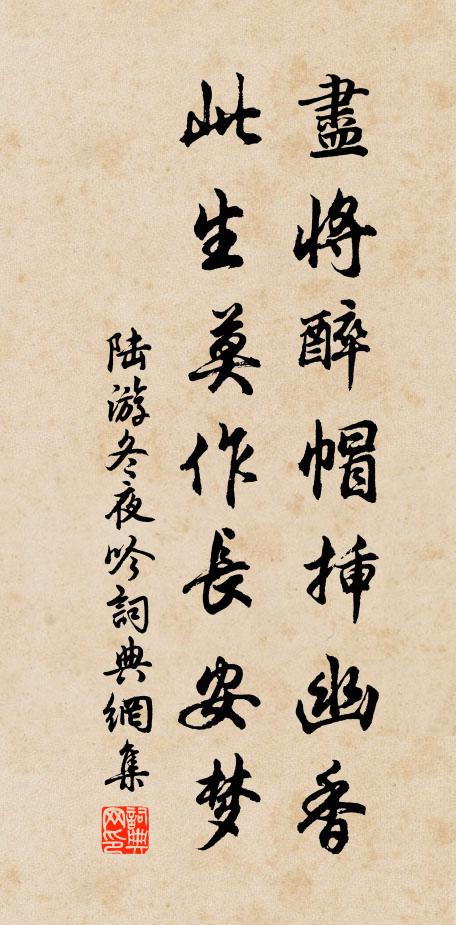 盡將醉帽插幽香
此生莫作長安梦
陆游冬夜吟詞典網集
詞典网印